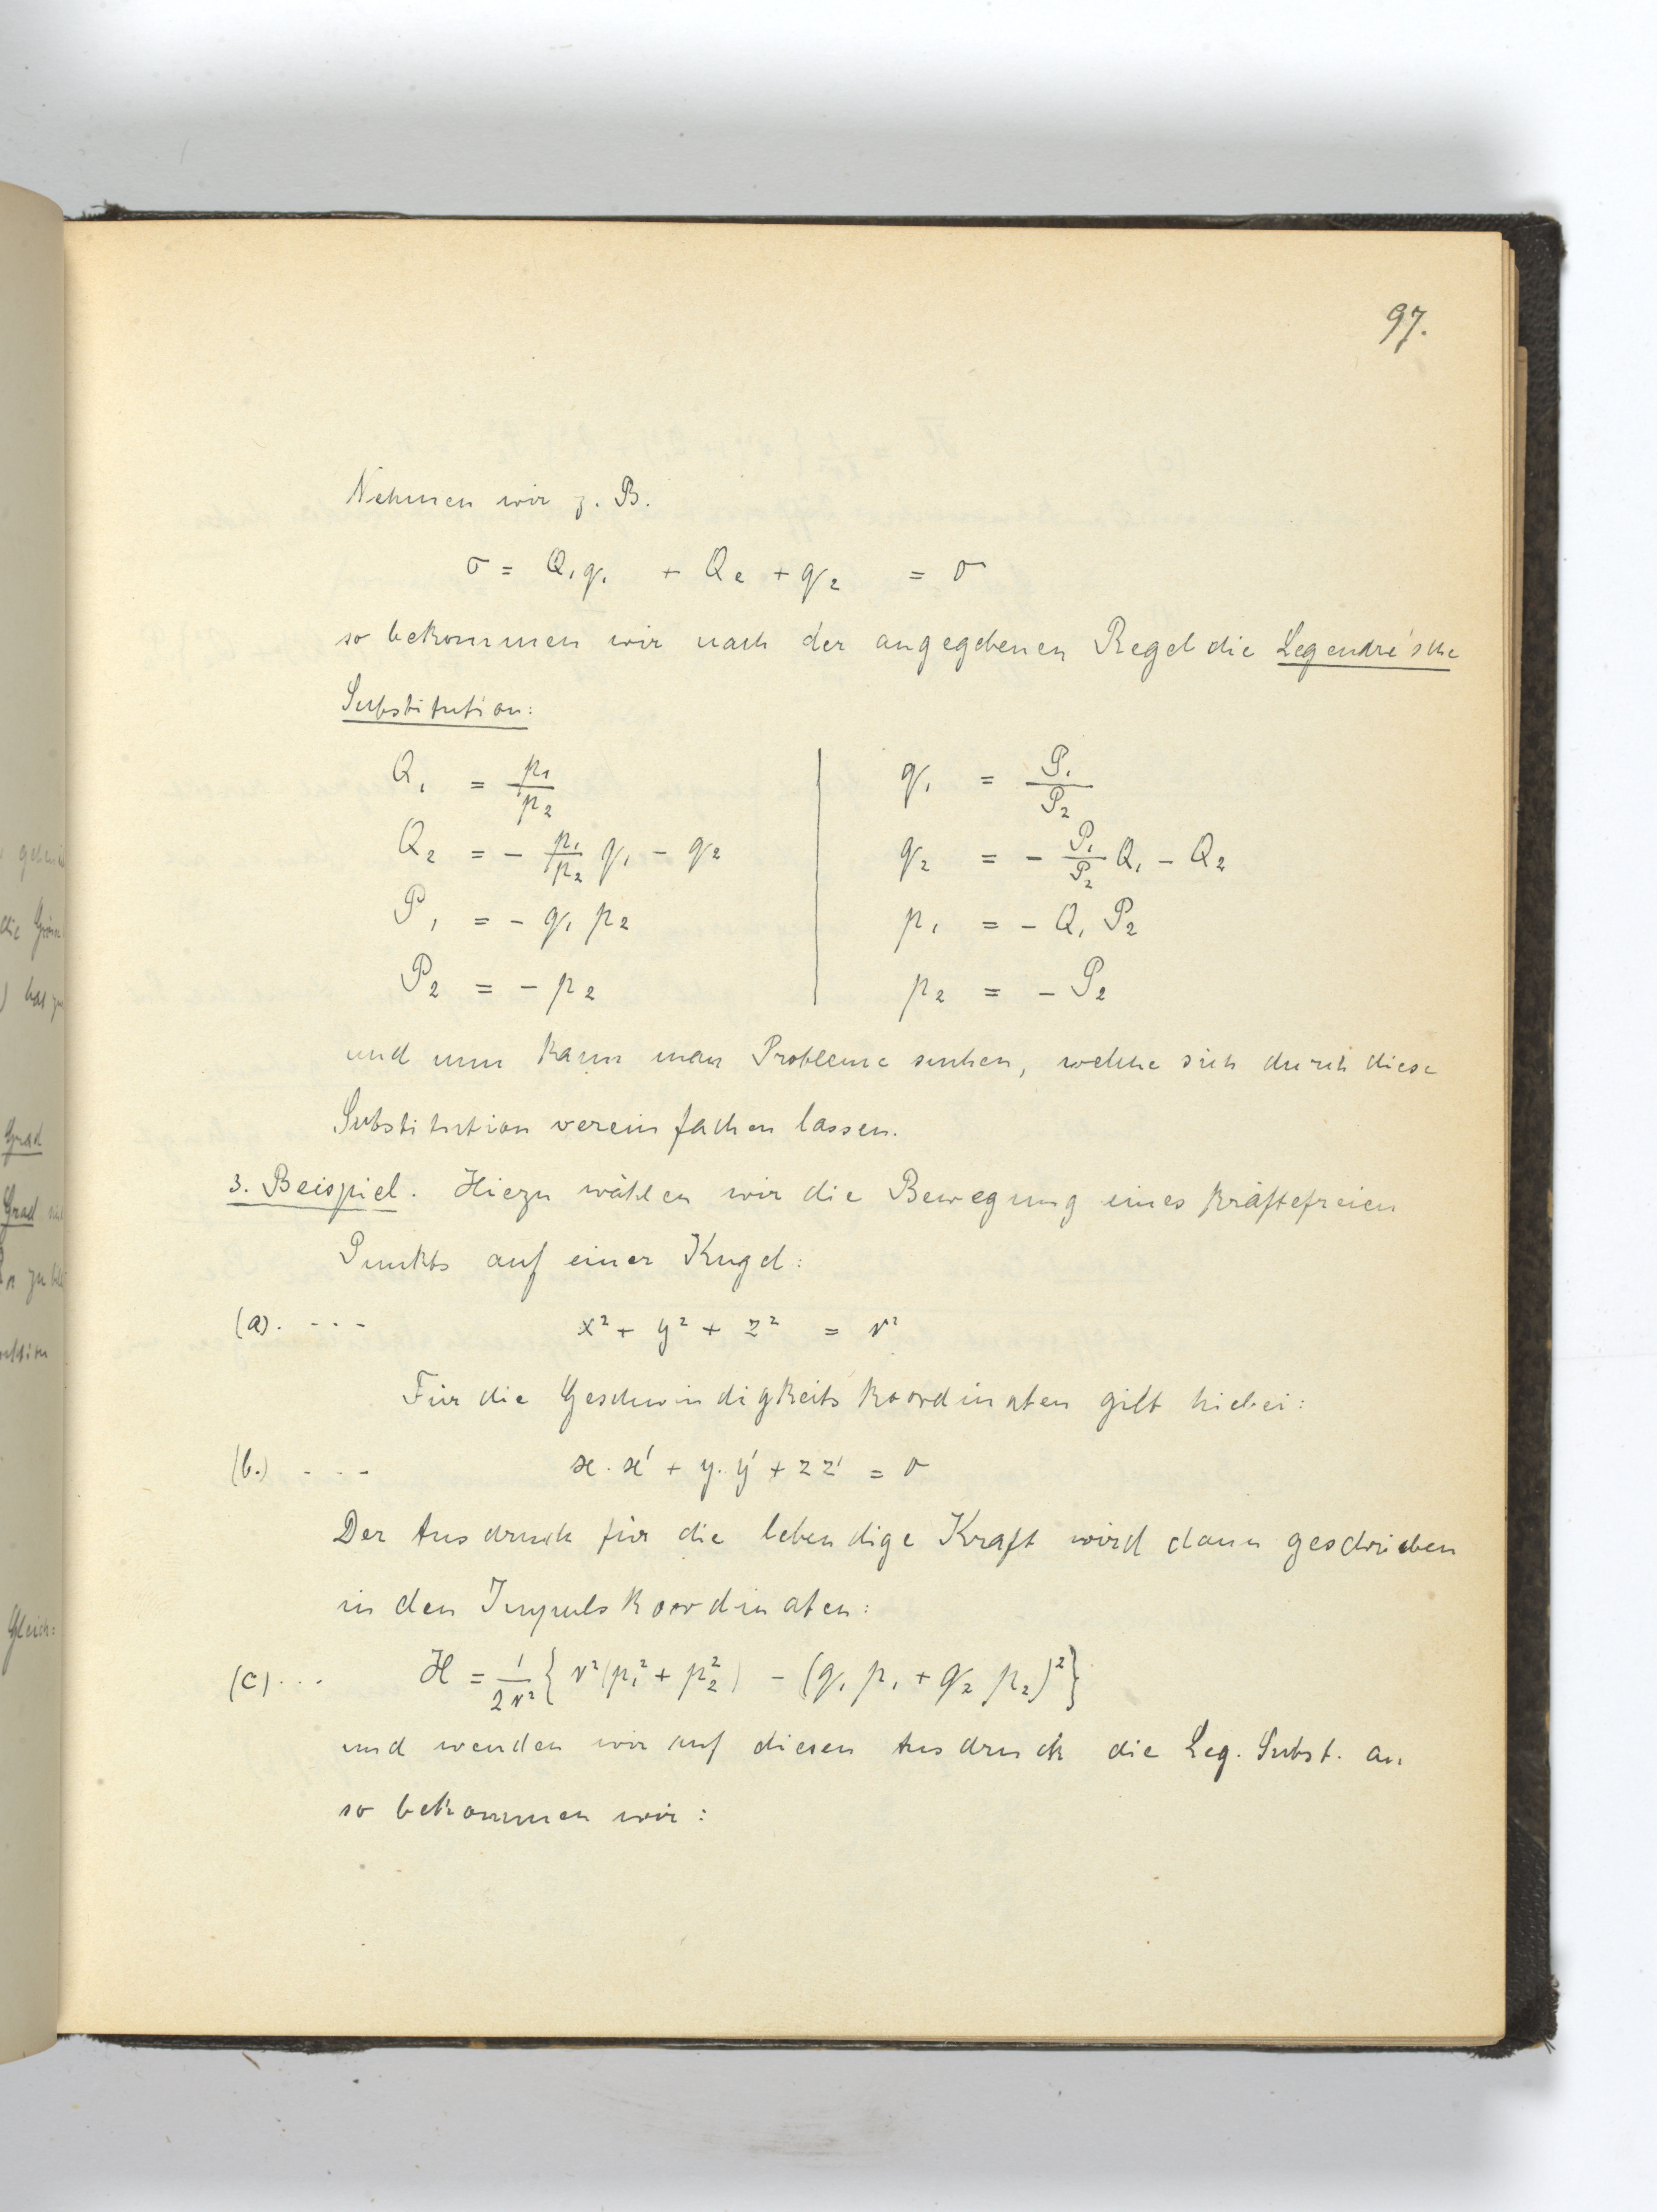 97.
Nehmen wir z. B.
σ = Q₁q₁ + Q₂ + q₂ = σ
so bekommen wir nach der angegebenen Regel die Legendre'sche
Substitution:
Q₁ = p₁/p₂ | q₁ = P₁/P₂
Q₂ = - p₁/p₂ q₁ - q₂ | q₂ = - P₁/P₂ Q₁ - Q₂
P₁ = - q₁ p₂ | p₁ = - Q₁ P₂
P₂ = - p₂ | p₂ = - P₂
und nun kann man Probleme suchen, welche sich durch diese
Substitution vereinfachen lassen.
3. Beispiel. Hiezu wählen wir die Bewegung eines kräftefreien
Punkts auf einer Kugel:
(a). - - - x² + y² + z² = r²
Für die Geschwindigkeitskoordinaten gilt hiebei:
(b.) - - - x·x' + y·y' + z z' = 0
Der Ausdruck für die lebendige Kraft wird dann geschrieben
in den Impulskoordinaten:
(c)... H = 1/2r² { r²(p₁² + p₂²) - (q₁ p₁ + q₂ p₂)² }
und wenden wir auf diesen Ausdruck die Leg. Subst. an
so bekommen wir:
Grad
Grad
Gleich: